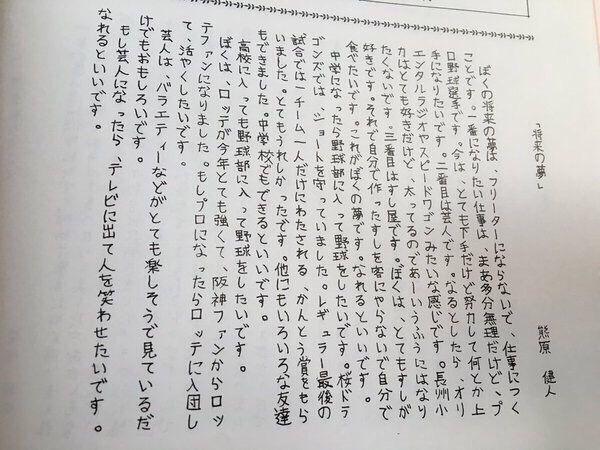 「将来の夢」
熊原 健人
ぼくの将来の夢は、フリーターにならないで、仕事につく
ことです。一番になりたい仕事は、まあ多分無理だけど、プ
ロ野球選手です。今は、とても下手だけど努力して何とか上
手になりたいです。二番目は芸人です。なるとしたら、オリ
エンタルラジオやスピードワゴンみたいな感じです。長州小
力はとても好きだけど、太ってるのであーいうふうにはなり
たくないです。三番目はすし屋です。ぼくは、とてもすしが
好きです。それで自分で作ったすしを客にやらないで自分で
食べたいです。これがぼくの夢です。なれるといいです。
中学になったら野球部に入って野球をしたいです。桜ドラ
ゴンズでは、ショートを守っていました。レギュラー最後の
試合では一チーム一人だけにわたされる、かんとう賞をもら
いました。とてもうれしかったです。他にもいろいろな友達
もできました。中学校でもできるといいです。
高校に入っても野球部に入って野球をしたいです。
ぼくは、ロッテが今年とても強くて、阪神ファンからロッ
テファンになりました。もしプロになったらロッテに入団し
て、活やくしたいです。
芸人は、バラエティーなどがとても楽しそうで見ているだ
けでもおもしろいです。
もし芸人になったら、テレビに出て人を笑わせたいです。
なれるといいです。